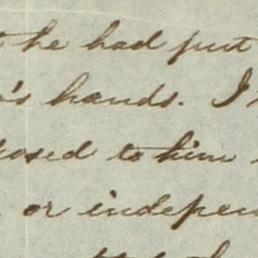 he had put
's hands. I
posed to him
or indepen